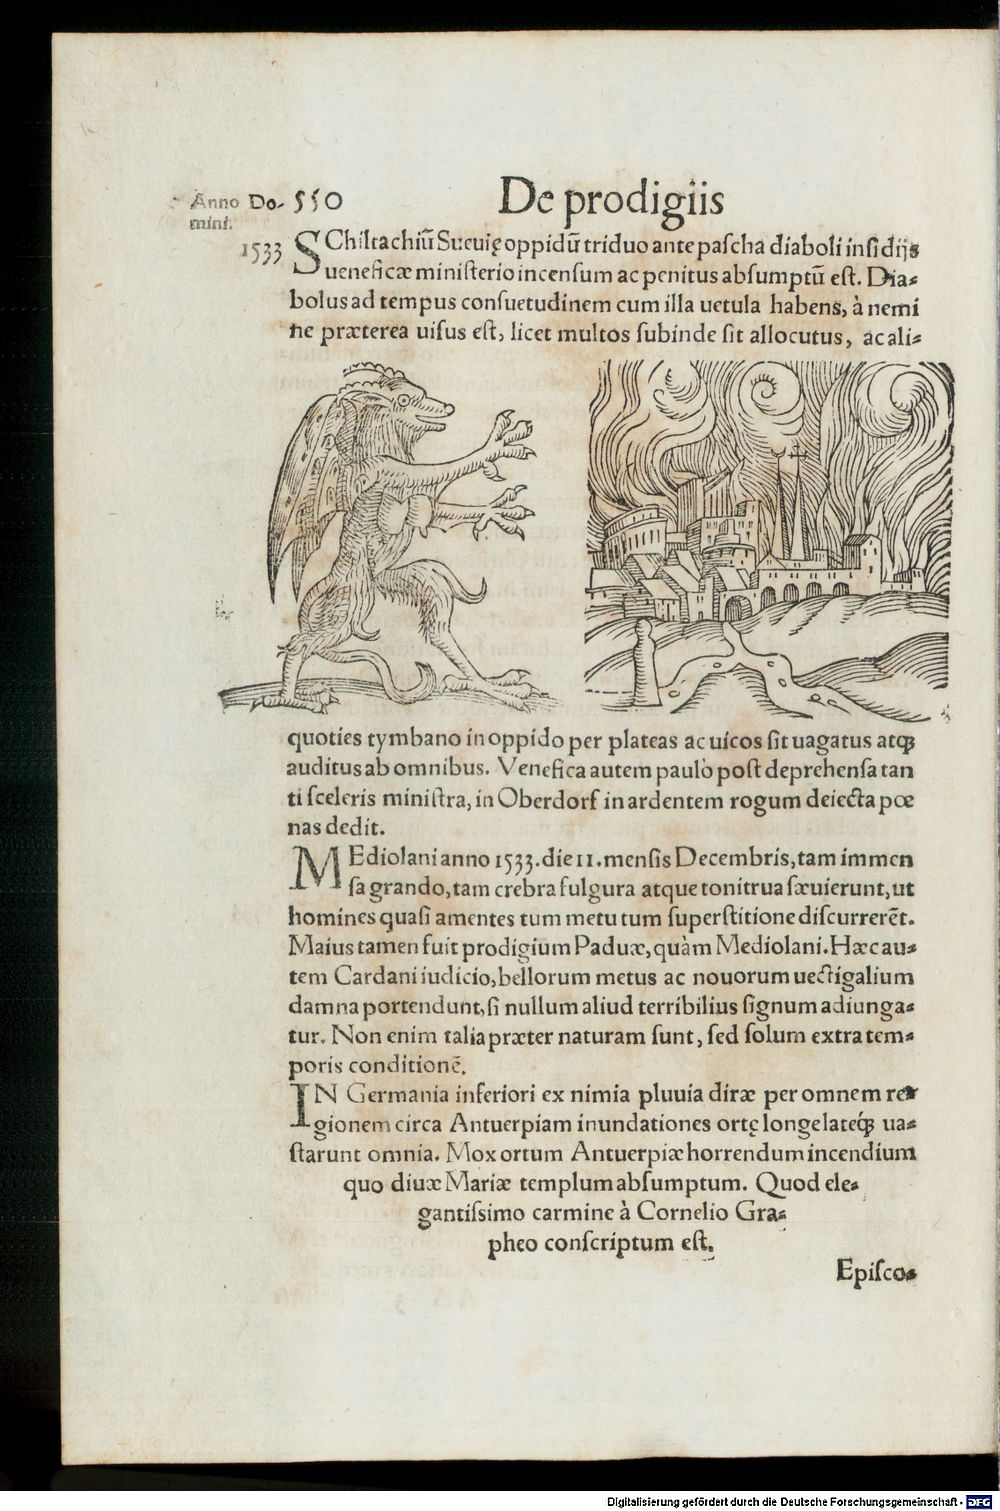 Anno Do- 550 De prodigiis
mini.
1533 SChiltachiũ Sueuię oppidũ triduo ante pascha diaboli insidijs
ueneficæ ministerio incensum ac penitus absumptũ est. Dia-
bolus ad tempus consuetudinem cum illa uetula habens, à nemi
ne præterea uisus est, licet multos subinde sit allocutus, ac ali-
quoties tymbano in oppido per plateas ac uicos sit uagatus atq́;
auditus ab omnibus. Venefica autem paulò post deprehensa tan
ti sceleris ministra, in Oberdorf in ardentem rogum deiecta pœ
nas dedit.
MEdiolani anno 1533. die 11. mensis Decembris, tam immen
sa grando, tam crebra fulgura atque tonitrua sæuierunt, ut
homines quasi amentes tum metu tum superstitione discurrerẽt.
Maius tamen fuit prodigium Paduæ, quàm Mediolani. Hæc au-
tem Cardani iudicio, bellorum metus ac nouorum uectigalium
damna portendunt, si nullum aliud terribilius signum adiunga-
tur. Non enim talia præter naturam sunt, sed solum extra tem-
poris conditionẽ.
IN Germania inferiori ex nimia pluuia diræ per omnem re-
gionem circa Antuerpiam inundationes ortę longe lateq́; ua-
starunt omnia. Mox ortum Antuerpiæ horrendum incendium
quo diuæ Mariæ templum absumptum. Quod ele-
gantissimo carmine à Cornelio Gra-
pheo conscriptum est.
Episco-
Digitalisierung gefördert durch die Deutsche Forschungsgemeinschaft - DFG